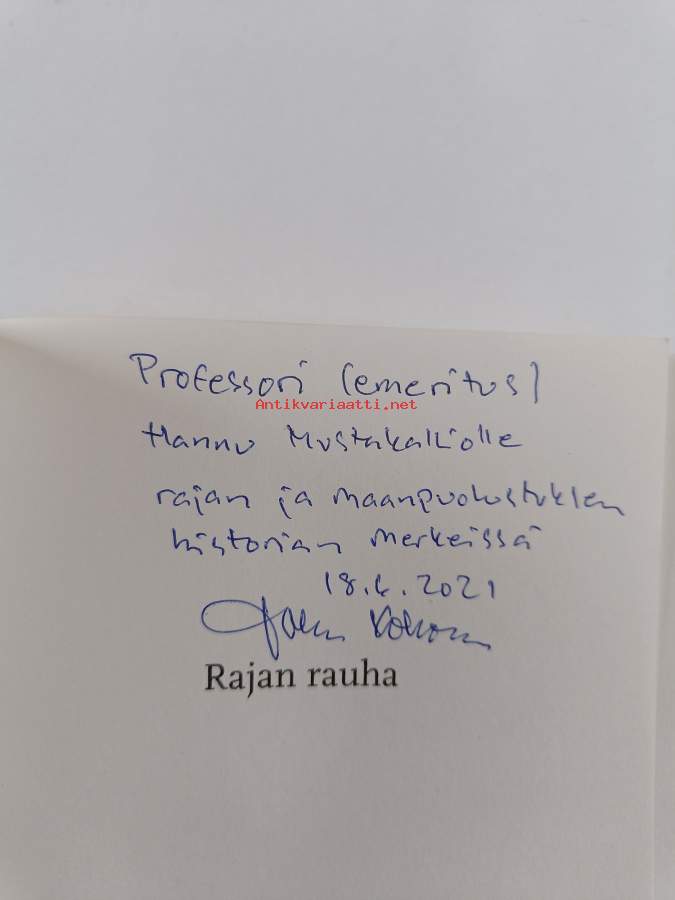 Professori (emeritus)
Antikvariaatti.net
Hannu Mustakalliolle
rajan ja maanpuolustuksen
historian merkeissä
18.6.2021
Rajan rauha